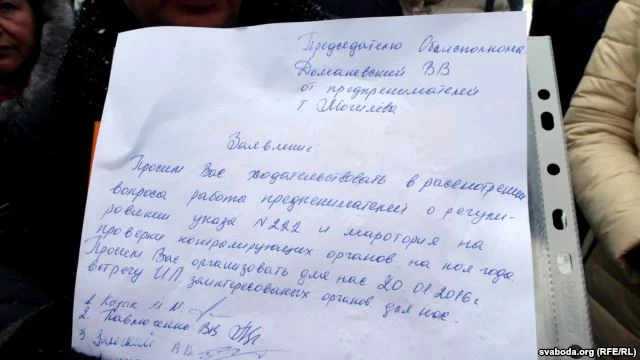 Председателю Облисполкома
Доманевский ВВ
от предпренимателей
г Могилёва
Заявление.
Просим Вас ходатаиствовать в рассмотрении
вопроса работа предпренимателей о регули-
ровании указа №222 и маротория на
проверки контролирующих органов на пол года.
Просим Вас организовать для нас 20 01.2016г
встречу ИП, заинтересованых органов для нас.
1. Казак М.М.
2. Павлюченко ВВ
3 В.В.
svaboda.org (RFE/RL)